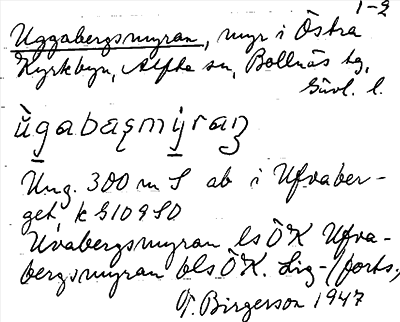 1-2
Uggabergsmyran, myr i Östra
Kyrkbyn, Alfta sn, Bollnäs tg,
Gävl. l.
ùgabaʂmỳraɲ
Ung. 300 m S ab i Ufvaber-
get, k G109SO
Uvabergsmyran ls ÖK Ufva-
bergsmyran bls ÖK. Lig- (forts.,
G. Birgerson 1947